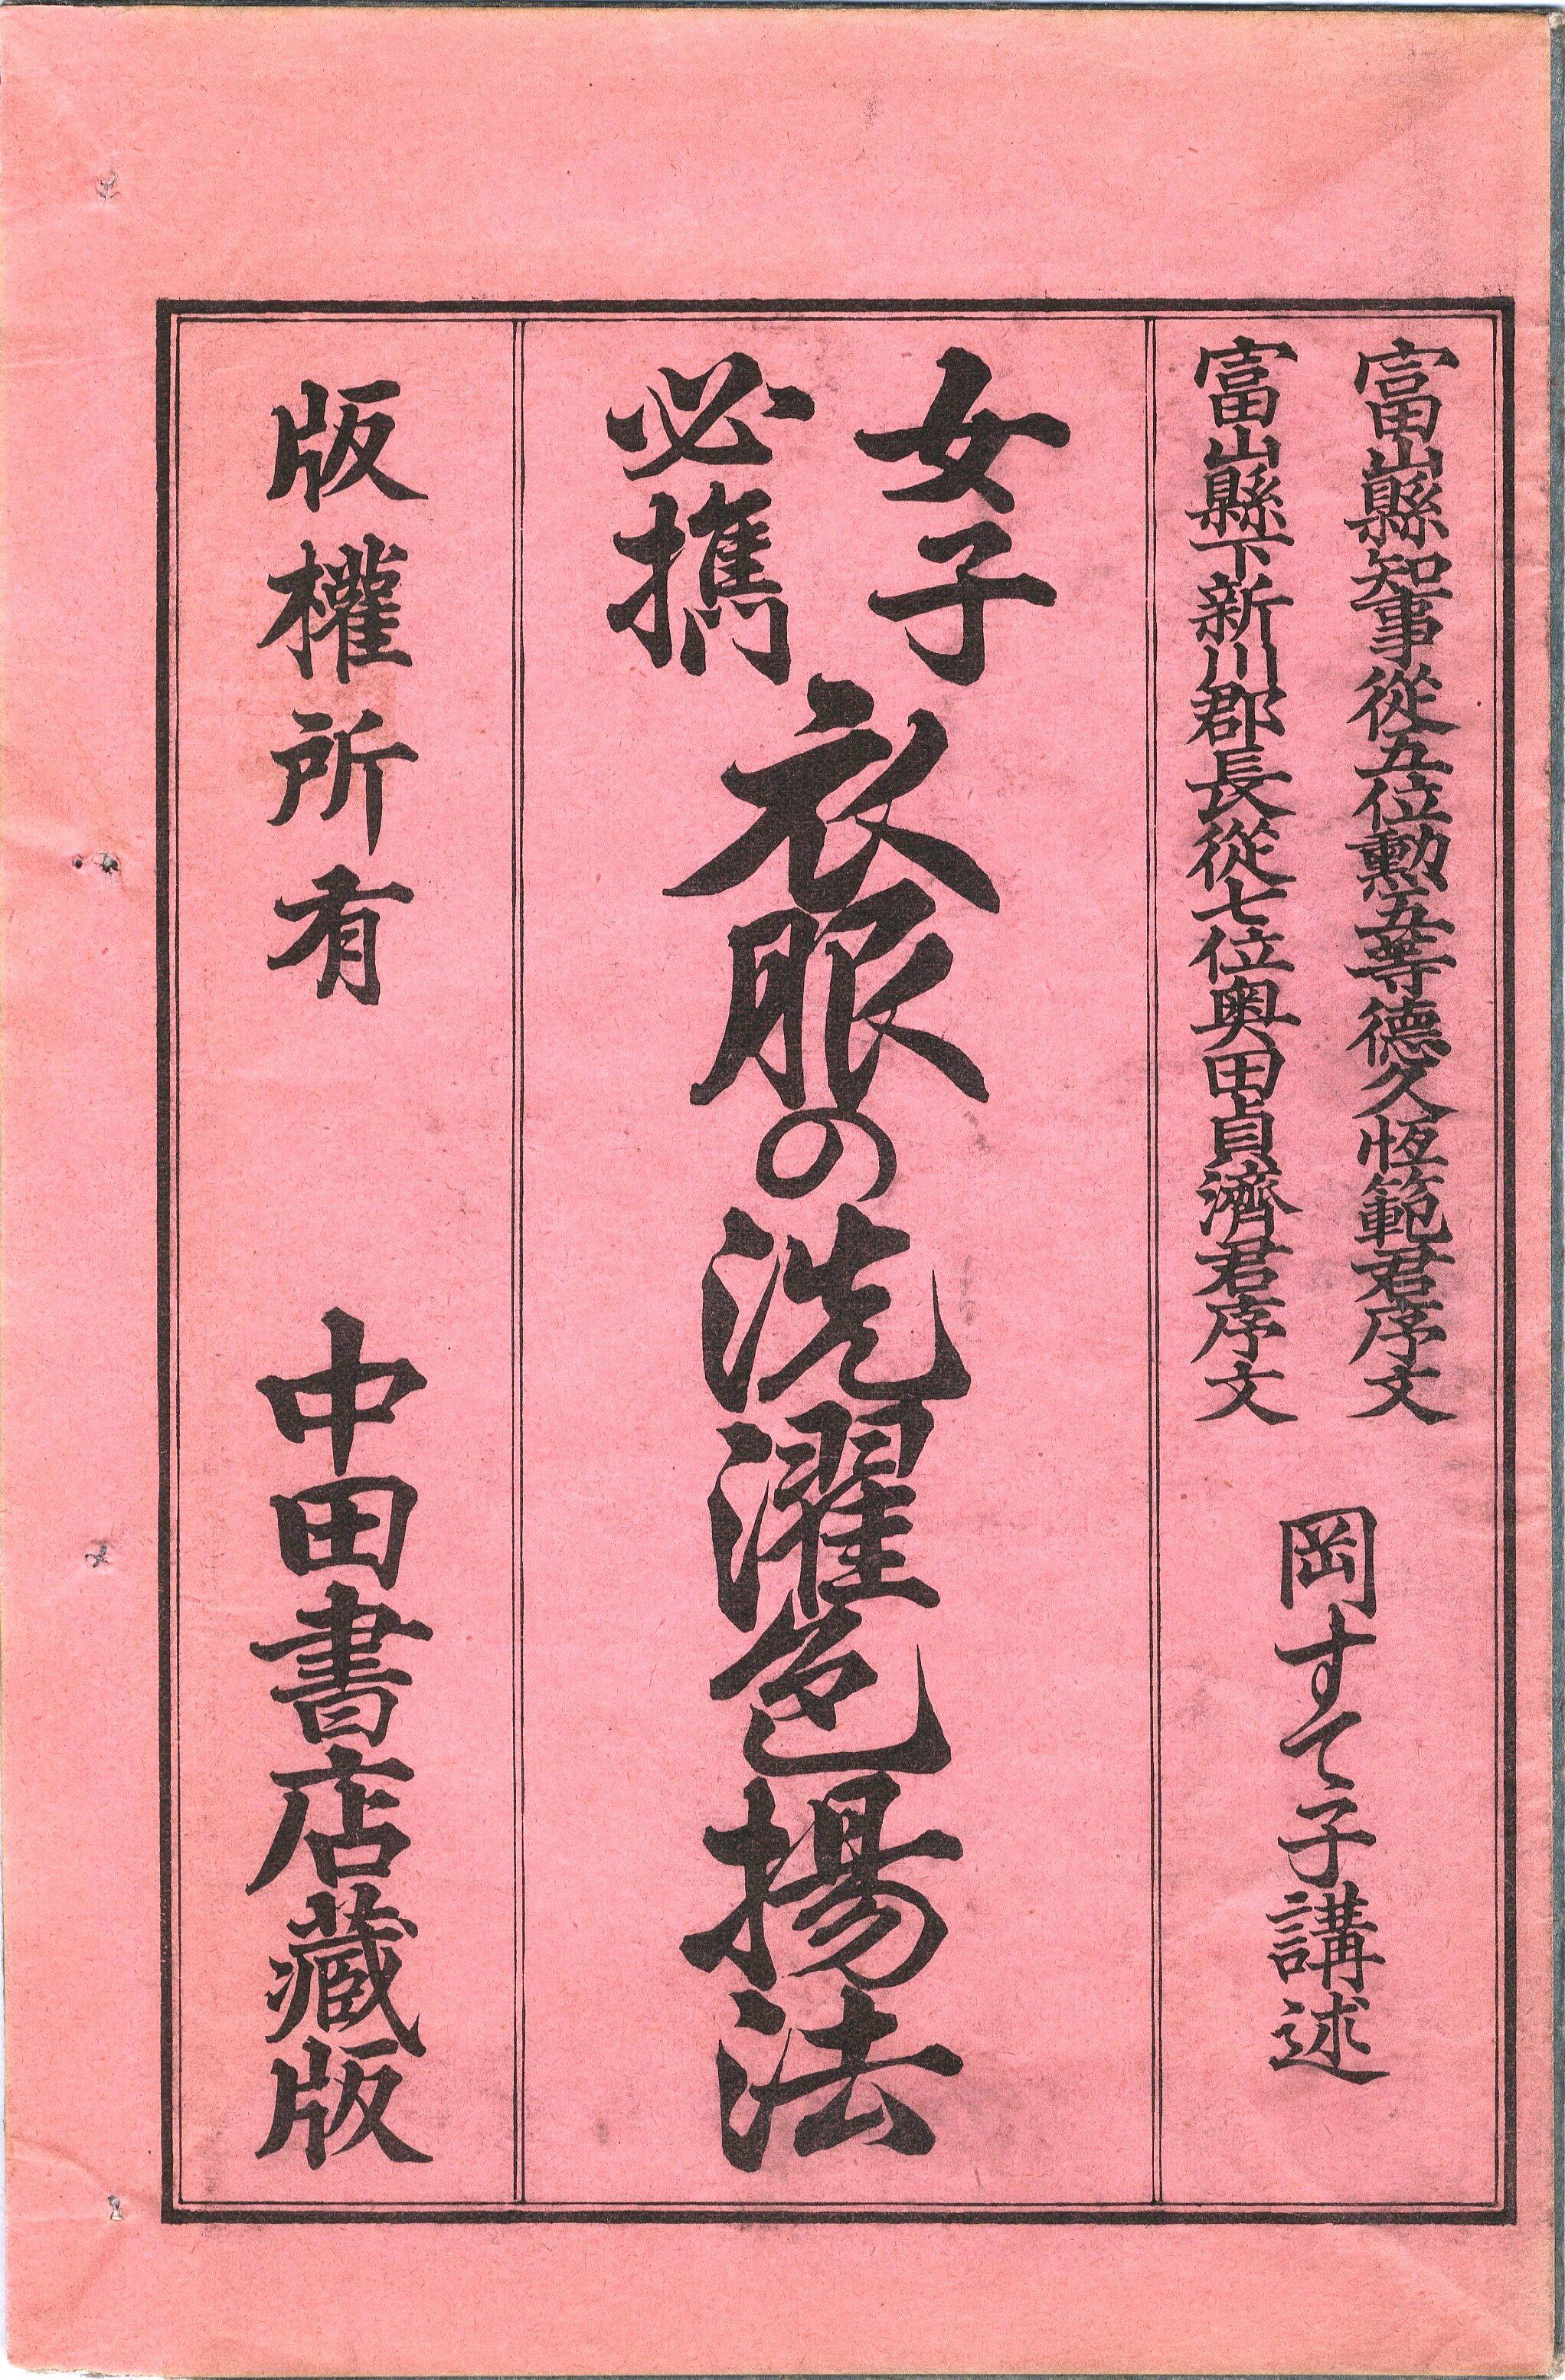 富山縣知事從五位勲五等德久恆範君序文
富山縣下新川郡長從七位奥田貞濟君序文
岡すて子講述
女子
必携
衣服の洗濯色揚法
版權所有
中田書店藏版